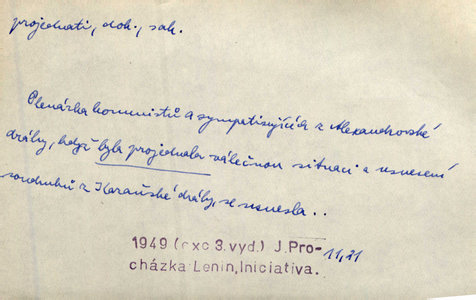 projednati, dok., sak.
Plenárka komunistů a sympatisujících z Alexandrovské
dráhy, když byla projednala válečnou situaci a usnesení
soudruhů z Kazaňské dráhy, se usnesla..
1949 (exc 3.vyd.) J.Pro-
cházka Lenin,Iniciativa.
11,21